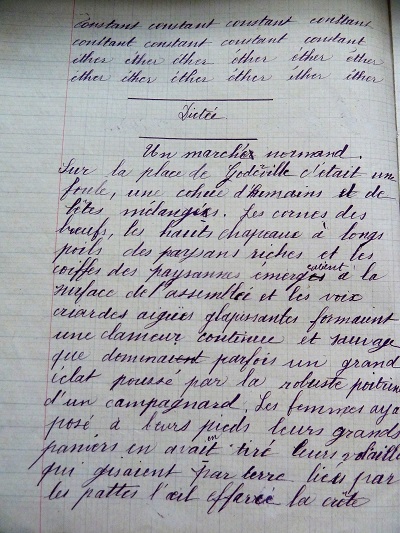 constant constant constant constant
constant constant constant constant
éther éther éther éther éther éther
éther éther éther éther éther éther
Dictée
Un marché normand.
Sur la place de Goderville c'était une
foule, une cohue d'humains et de
bêtes mélangés. Les cornes des
bœufs, les hauts chapeaux à longs
poils des paysans riches et les
coiffes des paysannes émergeaient à la
surface de l'assemblée et les voix
criardes aigues glapissantes formaient
une clameur continue et sauvage
que dominait parfois un grand
éclat poussé par la robuste poitrine
d'un campagnard. Les femmes aya
posé à leurs pieds leurs grands
paniers en avait tiré leurs volaille
qui gisaient par terre liés par
les pattes l'œil effaré la crête